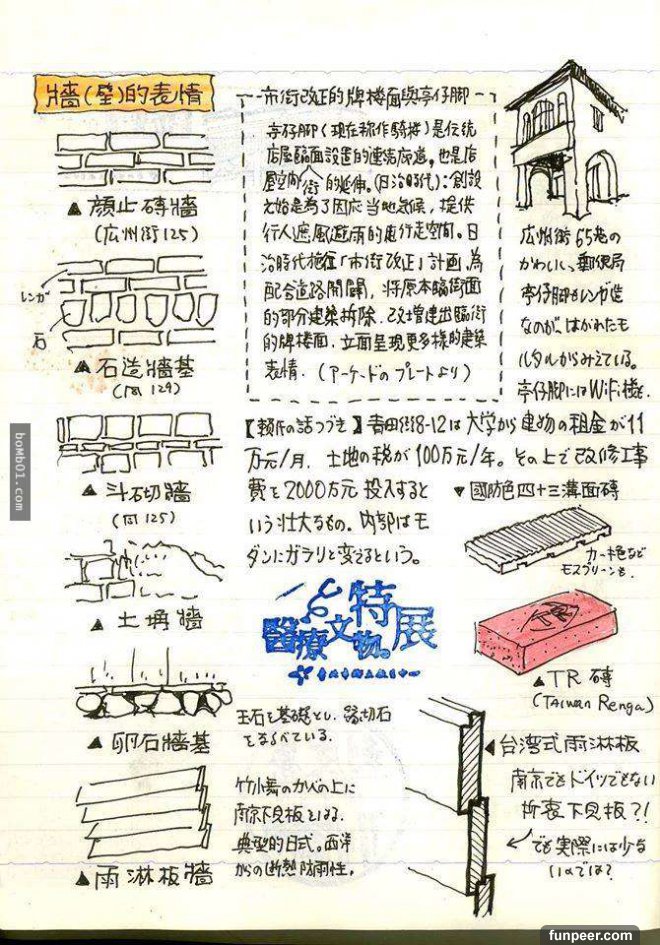 牆(壁)的表情
▲ 顔止磚牆
(広州街125)
レンガ
石
▲ 石造牆基
(同129)
▲ 斗砌牆
(同125)
▲ 土埆牆
▲ 卵石牆基
玉石を基礎とし、縁切石
をならべている.
▲雨淋板牆
竹小舞のかべの上に
南京下見板をはる.
典型的日式。西洋
からの断熱防雨性。
市街改正的牌楼面與亭仔脚
亭仔脚(現在称作騎楼)是伝統
店屋臨面設置的連続廊道。也是店
屋空間 街的延伸。(日治時代):創設
元始是為了因応当地気候，提供
行人遮風避雨的通行走空間。日
治時代施行「市街改正」計画，為
配合道路開闢，将原本臨街面
的部分建築拆除，改増建出臨街
的牌楼面，立面呈現更多様的建築
表情. (アーケードのプレートより)
広州街65老の
かわいい郵便局
亭仔脚もレンガ造
なのが、はがれたモ
ルタルからみえている。
亭仔脚にはWiFi機を.
【頼氏の話つづき】青田街8-12は大学から建物の租金が11
万元/月. 土地の税が100万元/年。その上で改修工事
費を2000万元投入すると
いう壮大なもの。内部はモ
ダンにガラリと変えるという。
▼國防色四十三溝面磚
カーキ色など
モスグリーンも.
特
醫療文物。展
▲TR磚
(TAIWAN Renga)
◀台湾式雨淋板
南京でもドイツでもない
折衷下見板?!
でも実際には少な
いのでは?
bomb01.com
funpeer.com